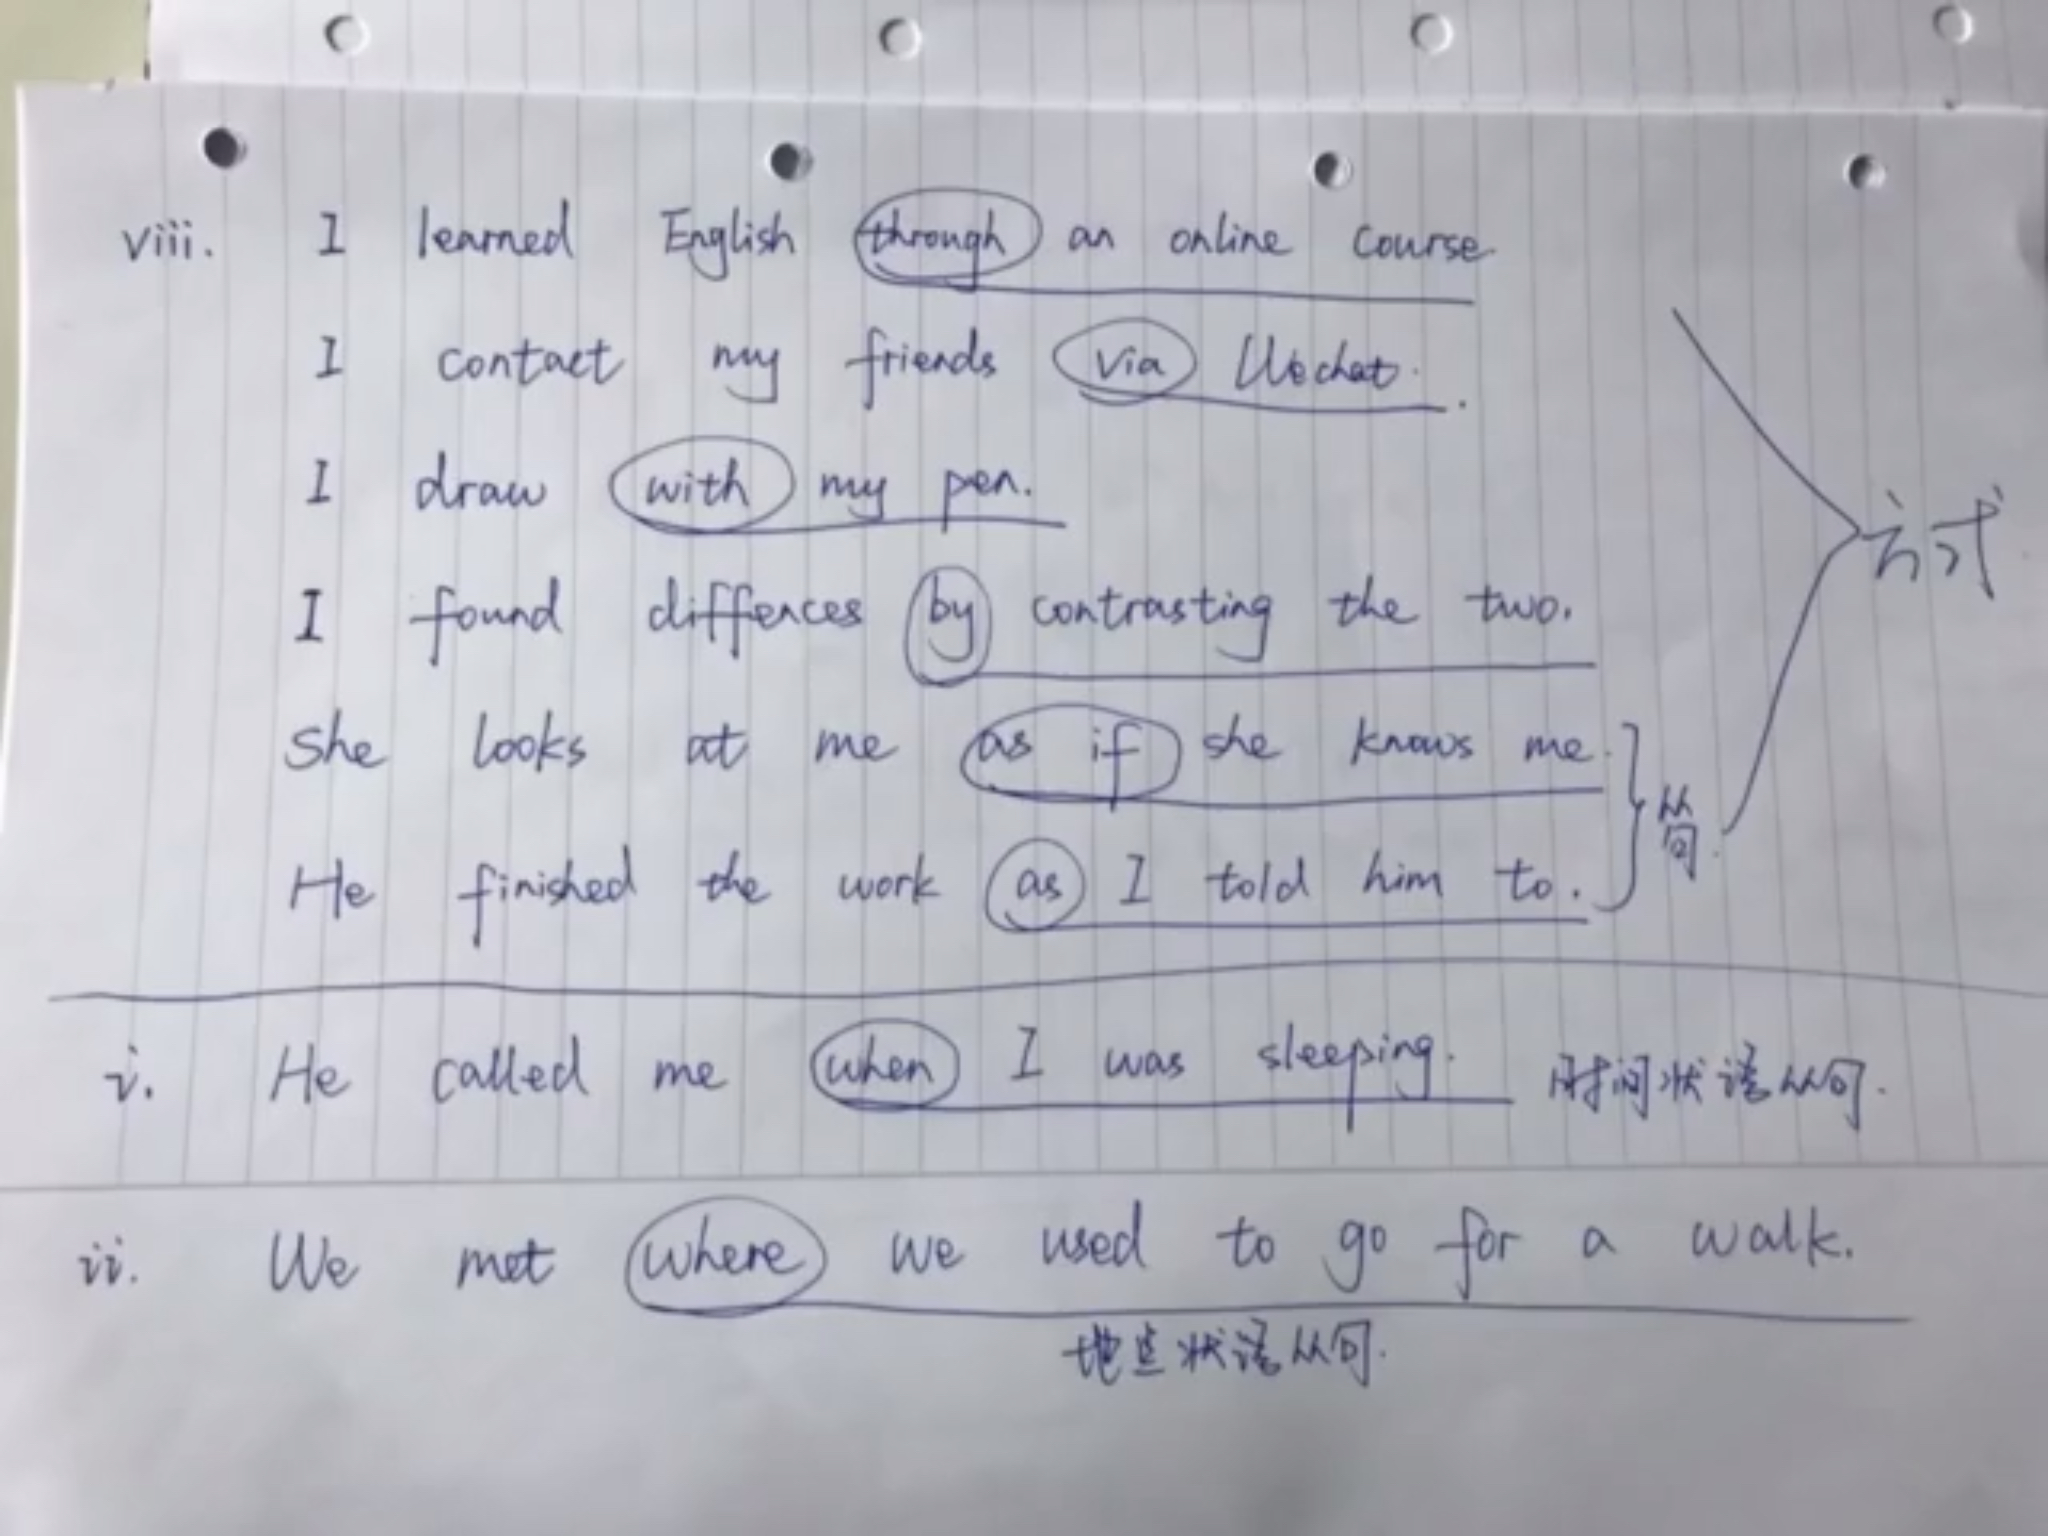 viii. I learned English through an online course.
I contact my friends via Wechat.
I draw with my pen.
方式
I found diffences by contrasting the two.
She looks at me as if she knows me.
从句.
He finished the work as I told him to.
i. He called me when I was sleeping. 时间状语从句.
ii. We met where we used to go for a walk.
地点状语从句.